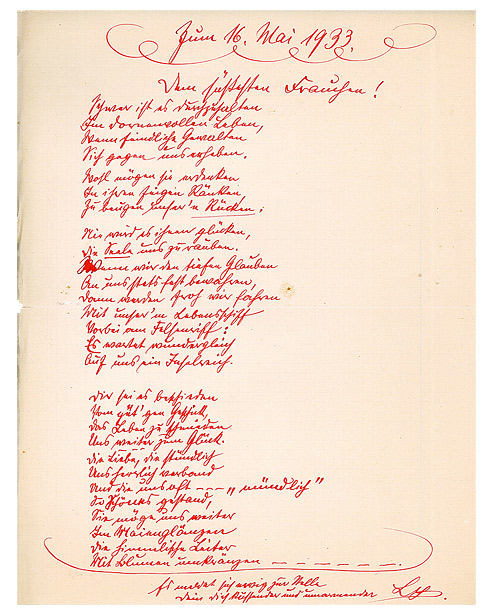 Zum 16. Mai 1933.
Dem süßesten Frauchen!
Schwer ist es durchzuhalten
Im dornenvollen Leben,
Wenn feindliche Gewalten
Sich gegen uns erheben.
Wohl mögen sie erdenken
In ihren feigen Ränken
Zu beugen unser'n Rücken;
Nie wird es ihnen glücken,
Die Seele uns zu rauben.
Wenn wir den tiefen Glauben
An uns stets fest bewahren,
Dann werden froh wir fahren
Mit unser'm Lebensschiff
Vorbei am Felsenriff:
Es wartet wundergleich
Auf uns ein Inselreich.
Dir sei es beschieden
Vom güt'gen Geschick,
Das Leben zu schmieden
Uns weiter zum Glück.
Die Liebe, die stündlich
Uns herrlich verband
Und die uns oft --- „mündlich"
So Schönes gestand,
Sie möge uns weiter
Im Maienglänzen
Die himmlische Leiter
Mit Blumen umkränzen - - - - - -
Es meldet sich ewig zur Stelle
Dein Dich küssender und umarmender